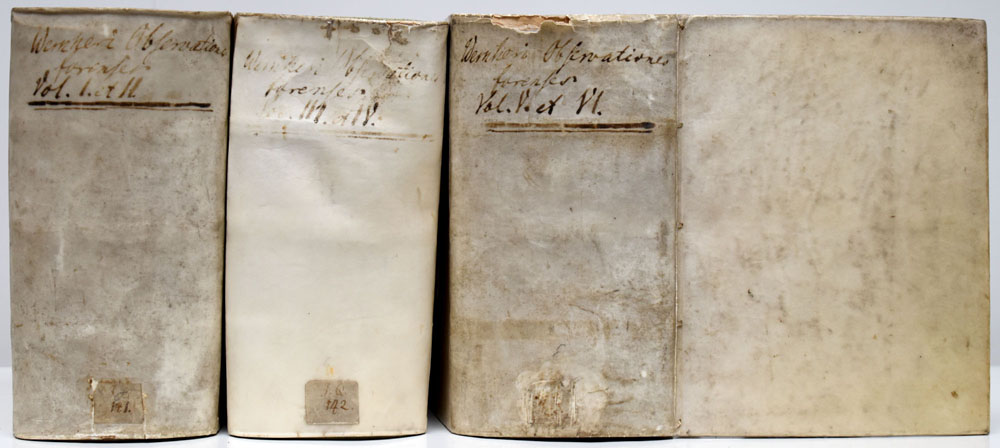 Wernheri Observationes
forenses
Vol. I. et II.
141.
Wernheri Observationes
forenses
Vol. III. et IV.
142.
Wernheri Observationes
forenses
Vol. V. et VI.